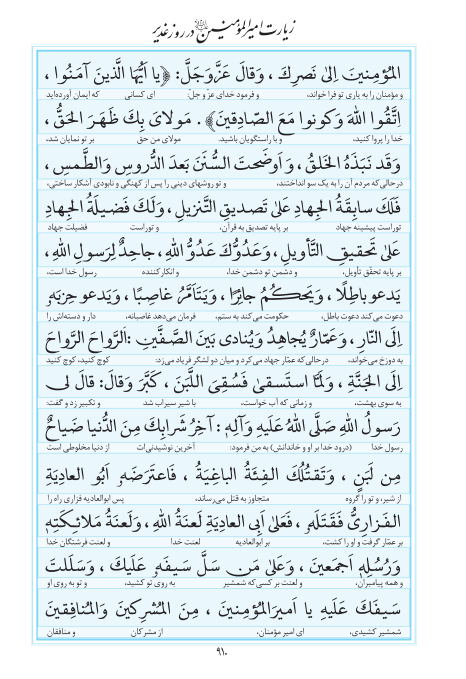 زیارت امیرالمؤمنین علیه‌السلام در روز غدیر
المُؤمِنينَ اِلىٰ نَصرِكَ ، وَقالَ عَزَّوَجَلَّ: ﴿يا اَيُّهَا الَّذينَ آمَنُوا ،
و مؤمنان را به یاری تو فرا خواند، و فرمود خدای عزّ و جلّ: ای کسانی که ایمان آورده‌اید
اِتَّقُوا اللهَ وَكونوا مَعَ الصّادِقينَ﴾ . مَولایَ بِكَ ظَهَرَ الحَقُّ ،
خدا را پروا کنید، و با راستگویان باشید. مولای من حق بر تو نمایان شد،
وَقَد نَبَذَهُ الخَلقُ ، وَ اَوضَحتَ السُّنَنَ بَعدَ الدُّروسِ وَالطَّمسِ ،
درحالی‌که مردم آن را به یک سو انداختند، و تو روشهای دینی را پس از کهنگی و نابودی آشکار ساختی،
فَلَكَ سابِقَةُ الجِهادِ عَلىٰ تَصديقِ التَّنزيلِ ، وَلَكَ فَضيلَةُ الجِهادِ
توراست پیشینه جهاد بر پایه تصدیق به قرآن، و توراست فضیلت جهاد
عَلىٰ تَحقيقِ التَّأويلِ ، وَعَدُوُّكَ عَدُوُّ اللهِ ، جاحِدٌ لِرَسولِ اللهِ ،
بر پایه تحقق تأویل، و دشمن تو دشمن خدا، و انکار کننده رسول خدا است،
يَدعو باطِلًا ، وَيَحكُمُ جائِرًا ، وَيَتَاَمَّرُ غاصِبًا ، وَيَدعو حِزبَهٗ
دعوت می‌کند دعوت باطل، حکومت می‌کند به ستم، فرمان می‌دهد غاصبانه، دار و دسته‌اش را
اِلَى النّارِ ، وَعَمّارٌ يُجاهِدُ وَيُنادى بَينَ الصَّفَّينِ :اَلرَّواحَ الرَّواحَ
به دوزخ می‌خواند، درحالی‌که عمّار جهاد می‌کرد و میان دو لشگر فریاد می‌زد: کوچ کنید، کوچ کنید
اِلَى الجَنَّةِ ، وَلَمَّا استَسقىٰ فَسُقِىَ اللَّبَنَ ، كَبَّرَ وَقالَ: قالَ لى
به سوی بهشت، و زمانی که آب خواست، با شیر سیراب شد و تکبیر زد و گفت:
رَسولُ اللهِ صَلَّى اللهُ عَلَيهِ وَآلِهٖ : آخِرُ شَرابِكَ مِنَ الدُّنيا ضَياحٌ
رسول خدا (درود خدا بر او و خاندانش) به من فرمود: آخرین نوشیدنی‌ات از دنیا مخلوطی است
مِن لَبَنٍ ، وَتَقتُلُكَ الفِئَةُ الباغِيَةُ ، فَاعتَرَضَهٗ اَبُو العادِيَةِ
از شیر، و تو را گروه متجاوز به قتل می‌رساند، پس ابوالعادیه فزاری راه را
الفَزارِىُّ فَقَتَلَهٗ ، فَعَلىٰ اَبِى العادِيَةِ لَعنَةُ اللهِ ، وَلَعنَةُ مَلائِكَتِهٖ
بر عمّار گرفت و او را کشت، بر ابوالعادیه لعنت خدا و لعنت فرشتگان خدا
وَرُسُلِهٖ اَجمَعينَ ، وَعَلىٰ مَن سَلَّ سَيفَهٗ عَلَيكَ ، وَسَلَلتَ
و همه پیامبران، و لعنت بر کسی‌که شمشیر به روی تو کشید، و تو به روی او
سَيفَكَ عَلَيهِ يا اَميرَالمُؤمِنينَ ، مِنَ المُشرِكينَ وَالمُنافِقينَ
شمشیر کشیدی، ای امیر مؤمنان، از مشرکان و منافقان
۹۱۰